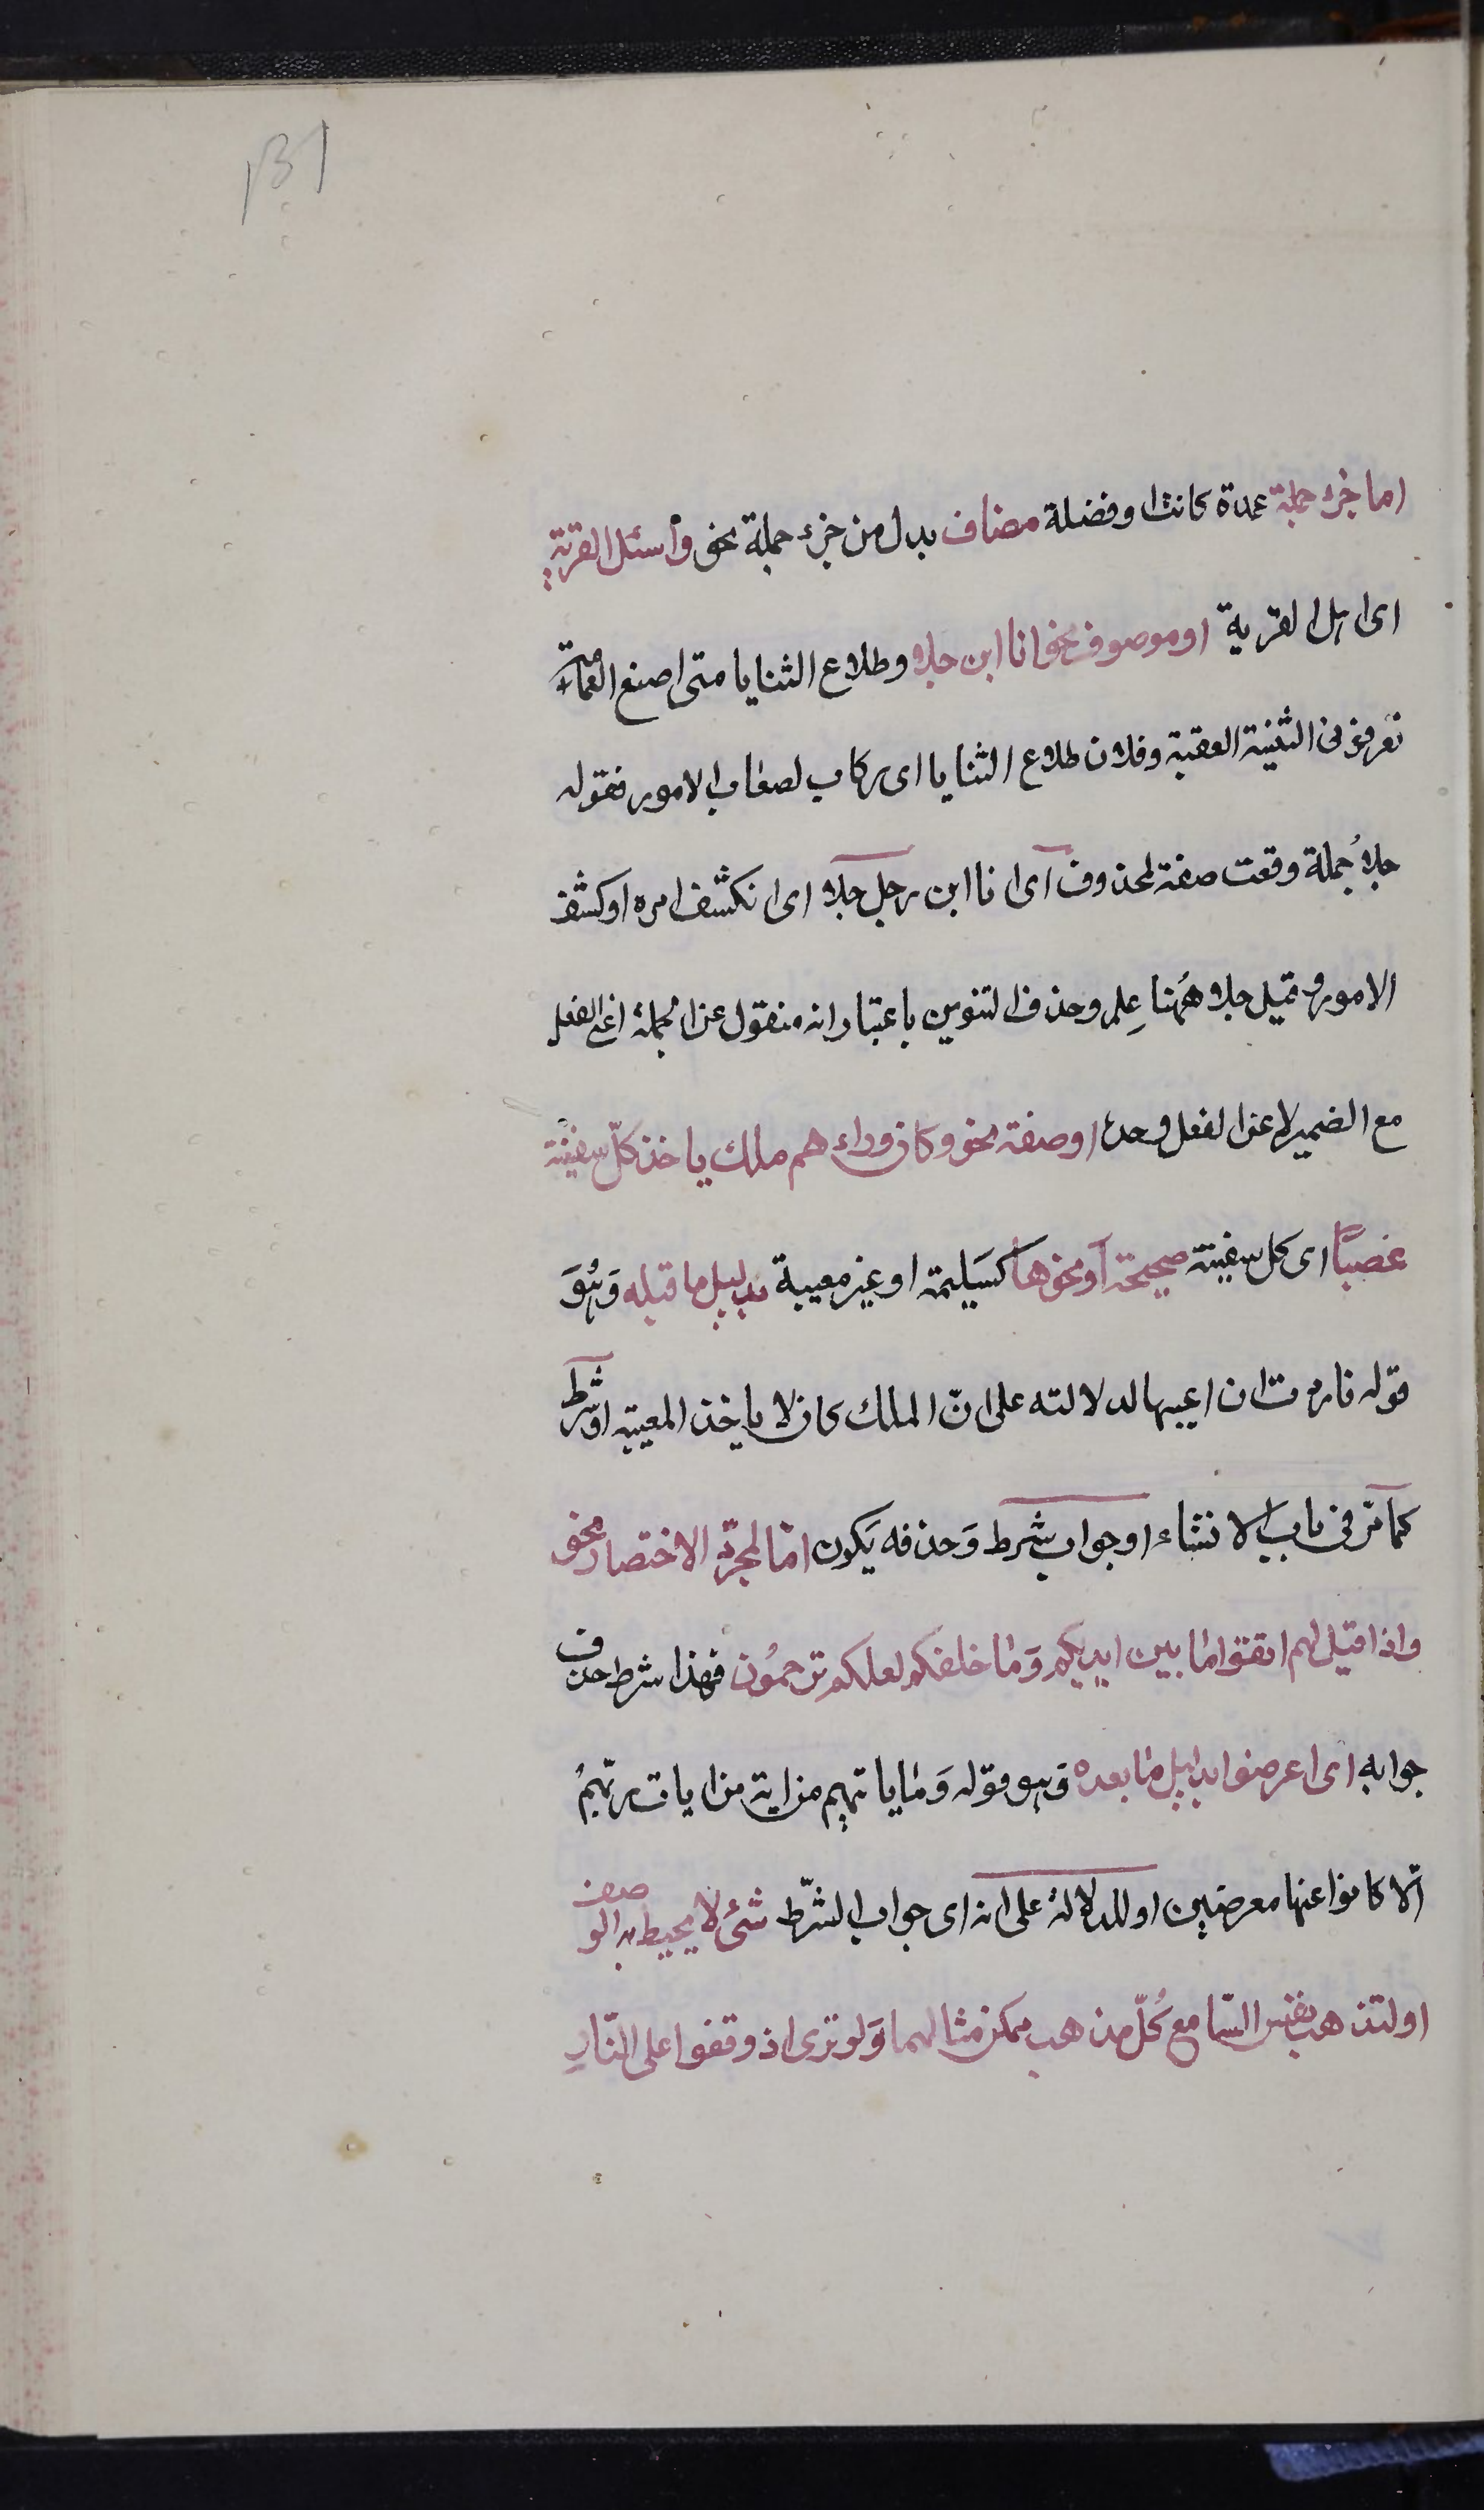 131
اما جزء جملة عمدة كانت او فضلة مضاف بدل من جزء جملة نحو واسئل القرية
اى اهل القرية او موصوف نحو انا ابن جلا وطلاع الثنايا متى اضع العمامة
تعرفونى الثنية العقبة وفلان طلاع الثنايا اى ركاب لصعاب الامور فقوله
جلا جملة وقعت صفة لمحذوف اى انا ابن رجل جلا اى انكشف امره او كشف
الامور وقيل جلا ههنا علم وحذف التنوين باعتبار انه منقول عن الجملة اعنى الفعل
مع الضمير لا عن الفعل وحده او صفة نحو وكان وراءهم ملك ياخذ كلّ سفينة
غصبًا اى كل سفينة صحيحة او نحوها كسَليمة او غير معيبة بدليل ما قبله وَهُوَ
قوله فاردت ان اعيبها لدلالته على انّ الملك كان لا ياخذ المعيبة او شرط
كما مرّ فى باب الانشاء او جواب شرط وَحذفه يَكون امّا لمجرّد الاختصار نحو
واذا قيل لهم اتقوا ما بين ايديكم وَما خلفكم لعلكم ترحمُون فهذا شرط حذف
جوابه اى اعرضوا بدليل ما بعده وَهو قوله وَما ياتيهم من اية من ايات ربّهمُ
الّا كانوا عنها معرضين او للدلالة على انه اى جواب الشّرط شئ لا يحيط به الوصف
او لتذهب نفس السّامع كُلّ مذهب ممكن مثالهما وَلو ترى اذ وقفوا على النّارِ